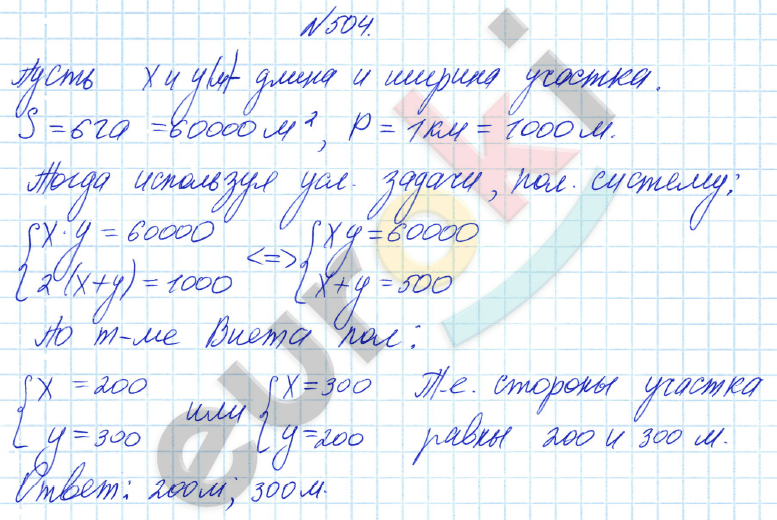 №504.
Пусть x и y(м)- длина и ширина участка.
S = 6га = 60000 м², P = 1км = 1000м.
Тогда используя усл. задачи, пол. систему:
{x·y = 60000 <=> {xy = 60000
{2(x+y) = 1000 {x+y = 500
По т-ме Виета пол:
{x = 200 или {x = 300 Т.е. стороны участка
{y = 300 {y = 200 равны 200 и 300 м.
Ответ: 200м; 300м.
euroki